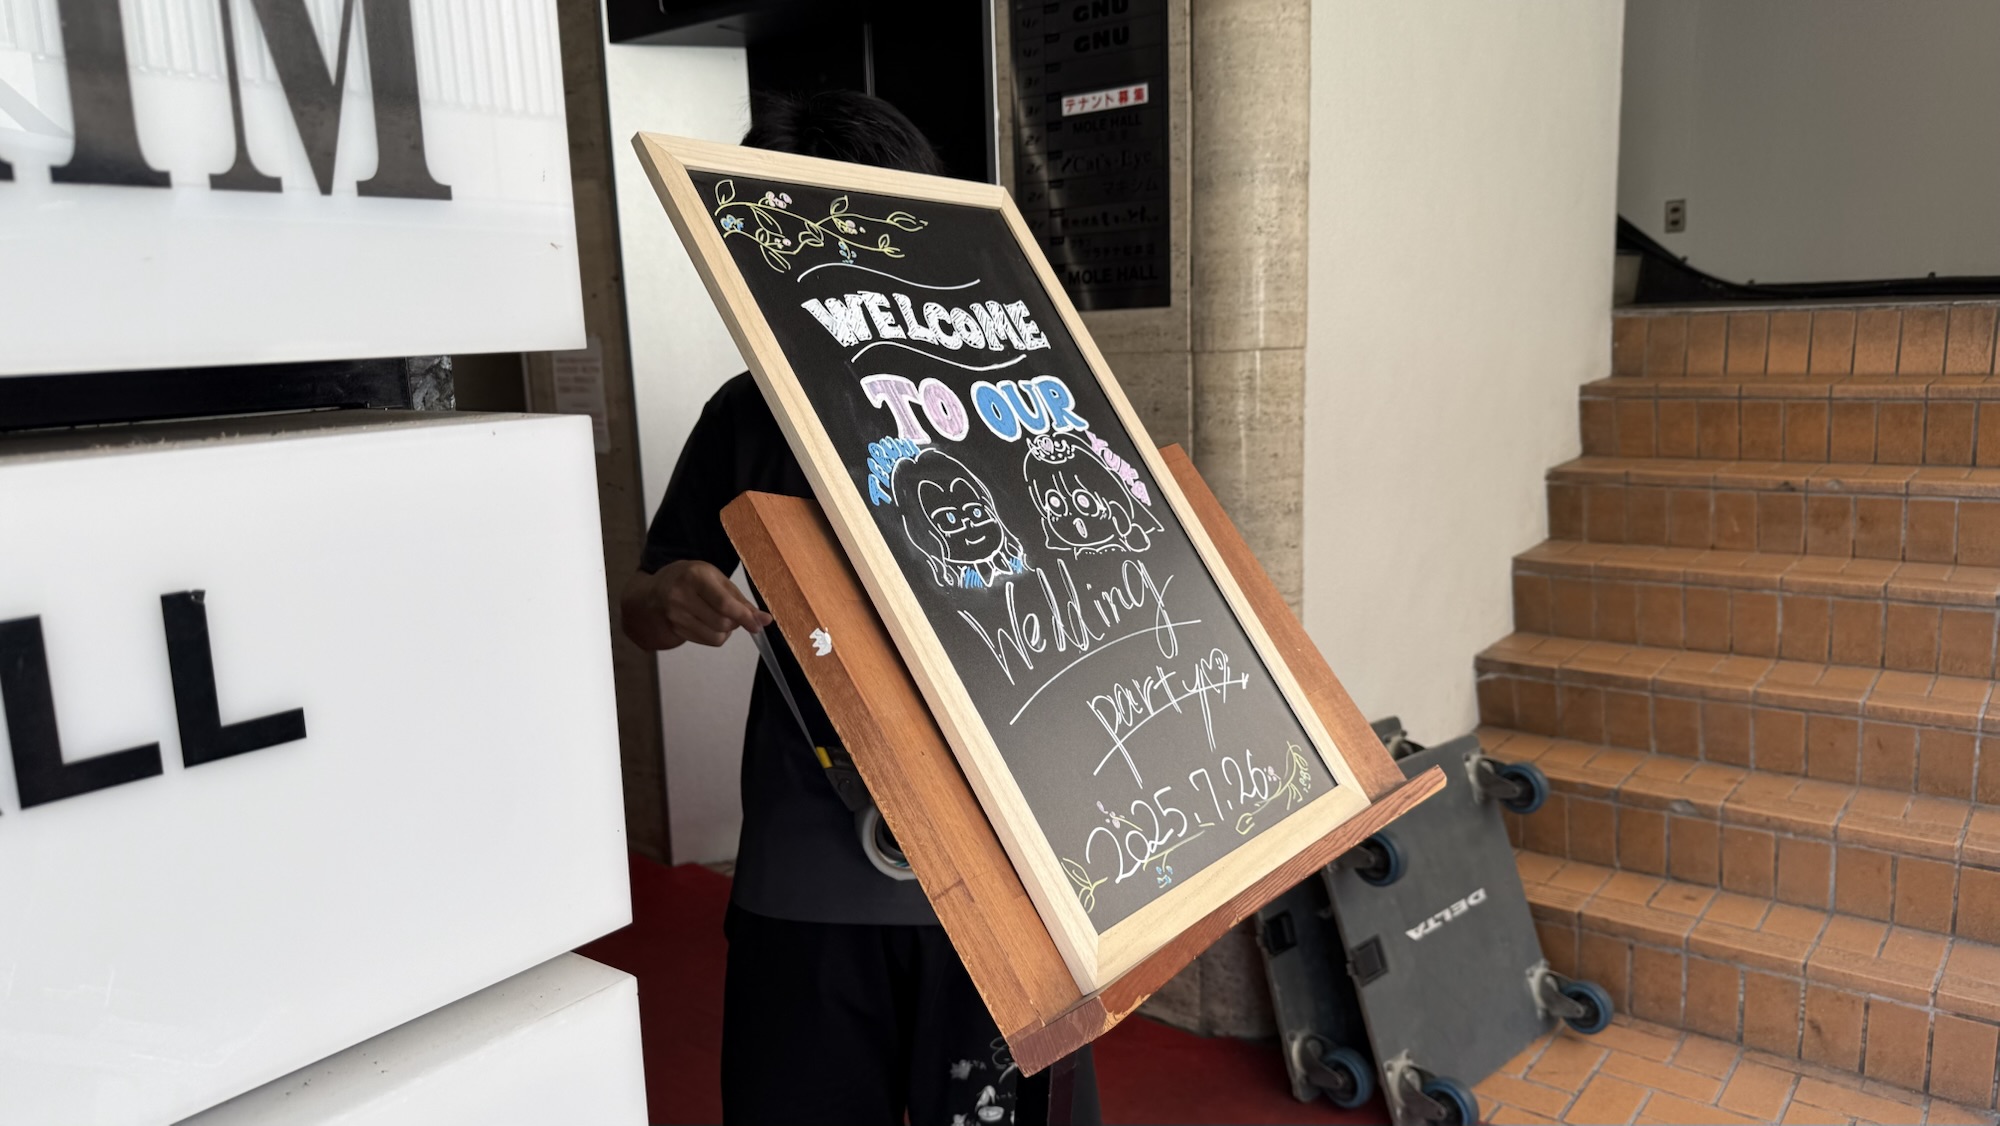 IM
LL
GNU
GNU
テナント募集
MOLE HALL
Cat's-Eye
マキシム
MOLE HALL
WELCOME
TO OUR
Wedding
party
2025.7.26
DELTA